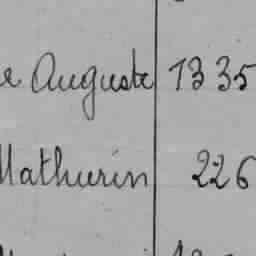 e Auguste 1335
Mathurin 226